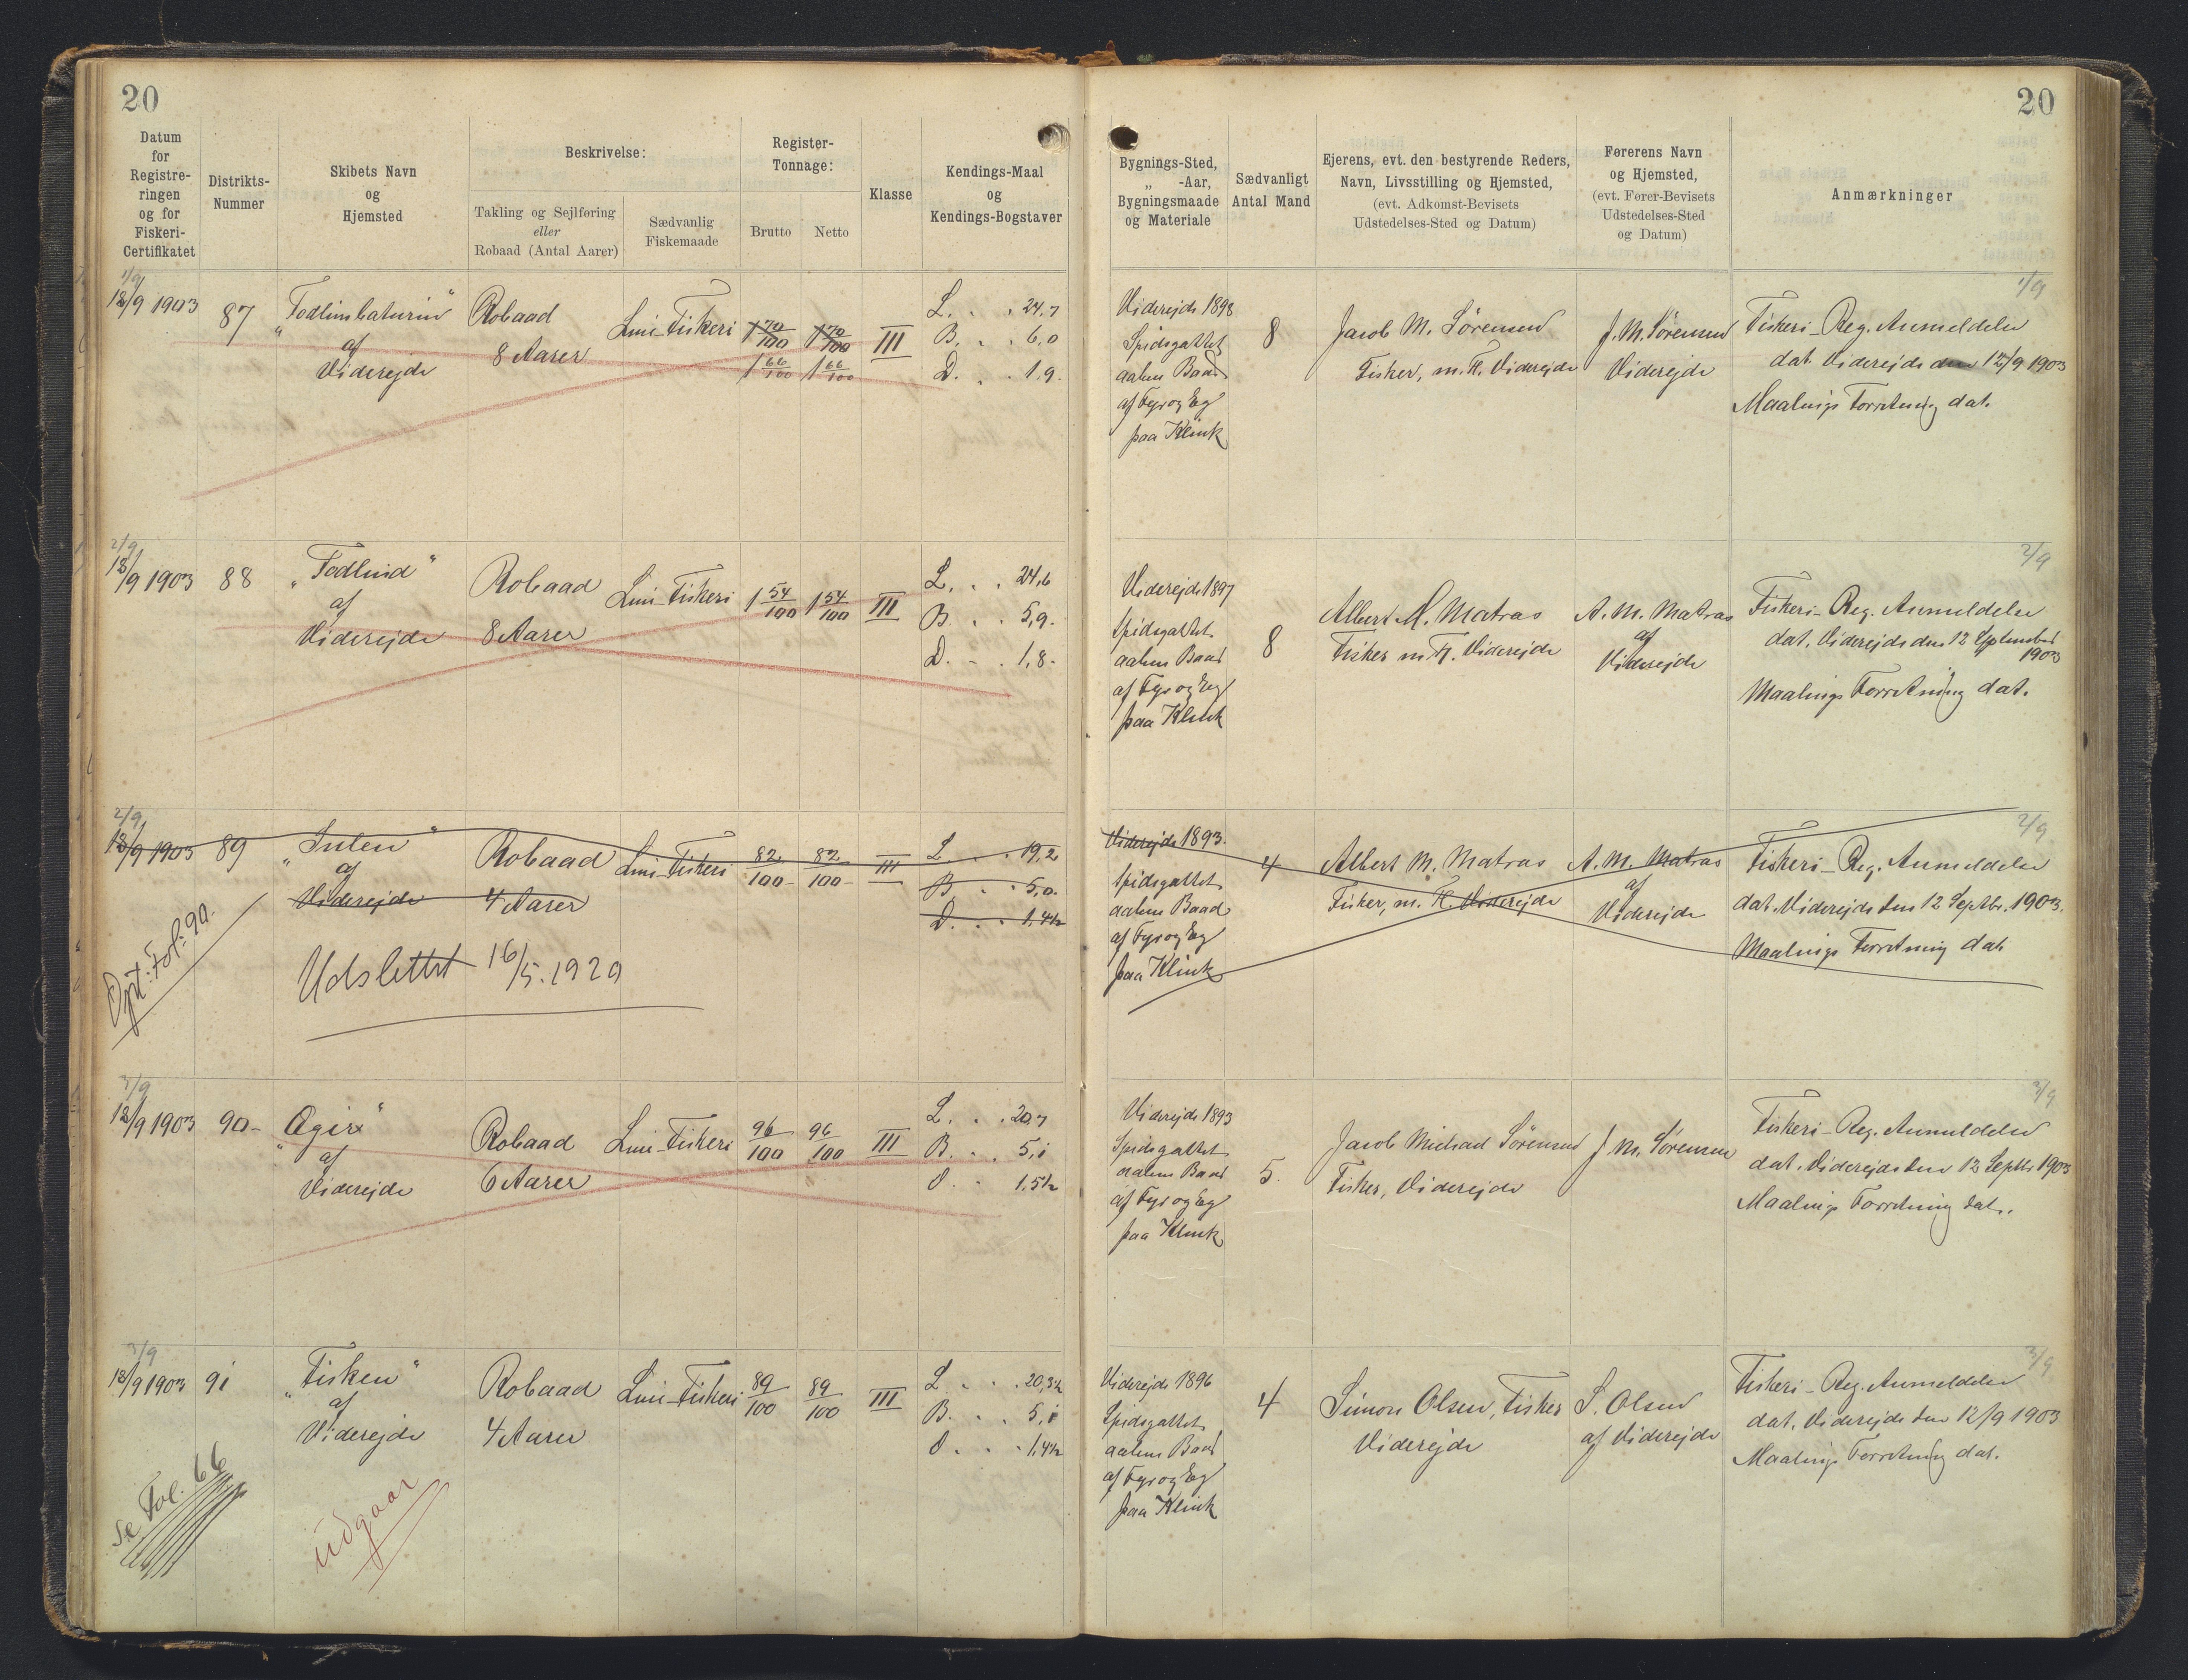 20
20
Datum
for
Registre-
ringen
og for
Fiskeri-
Certifikatet
Distrikts-
Nummer
Skibets Navn
og
Hjemsted
Beskrivelse:
Takling og Sejlføring
eller
Robaad (Antal Aarer)
Sædvanlig
Fiskemaade
Register-
Tonnage:
Brutto
Netto
Klasse
Kendings-Maal
og
Kendings-Bogstaver
Bygnings-Sted,
„ -Aar,
Bygningsmaade
og Materiale
Sædvanligt
Antal Mand
Ejerens, evt. den bestyrende Reders,
Navn, Livsstilling og Hjemsted,
(evt. Adkomst-Bevisets
Udstedelses-Sted og Datum)
Førerens Navn
og Hjemsted,
(evt. Fører-Bevisets
Udstedelses-Sted
og Datum)
Anmærkninger
1/9
18/9 1903
87
af
Viderejde
Robaad
8 Aarer
Line-Fiskeri
1 70/100
1 70/100
1 66/100
1 66/100
III
L. . . 24,7
B. . . 6,0
D. . . 1,9.
Viderejde 1898
Spidsgattet
aaben Baad
af Fyr og Eg
paa Klink
8
Jacob M. Sørensen
Fisker, m. Fl. Viderejde
J. M. Sørensen
Viderejde
1/9
Fiskeri-Reg. Anmeldelse
dat. Viderejde den 12/9 1903
Maalings Forretning dat.
2/9
18/9 1903
88
af
Viderejde
Robaad
8 Aarer
Line-Fiskeri
1 54/100
1 54/100
III
L. . . 24,6
B. . . 5,9.
D. . . 1,8.
Viderejde 1897
Spidsgattet
aaben Baad
af Fyr og Eg
paa Klink
8
Albert M. Matras
Fisker m. Fl. Viderejde
A. M. Matras
af
Viderejde
2/9
Fiskeri-Reg. Anmeldelse
dat. Viderejde den 12 September
1903
Maalings Forretning dat.
2/9
18/9 1903
89
„Sulen“
af
Viderejde
Robaad
4 Aarer
Line-Fiskeri
82/100
82/100
III
L . . 19,2
B . . 5,0.
D. . . 1,4½
Viderejde 1893.
Spidsgattet
aaben Baad
af Fyr og Eg
paa Klink
4
Albert M. Matras
Fisker, m. Fl. Viderejde
A. M. Matras
af
Viderejde
2/9
Fiskeri-Reg. Anmeldelse
dat. Viderejde den 12 Septbr. 1903.
Maalings Forretning dat.
Opt: Fol: 90.
Udslettet 16/5.1929
3/9
18/9 1903
90
„Ægir“
af
Viderejde
Robaad
6 Aarer
Line-Fiskeri
96/100
96/100
III
L. . . 20,7
B. . . 5,1
D. . 1,5½
Viderejde 1893
Spidsgattet
aaben Baad
af Fyr og Eg
paa Klink
5.
Jacob Michael Sørensen
Fisker, Viderejde
J. M. Sørensen
3/9
Fiskeri-Reg. Anmeldelse
dat. Viderejde den 12 Septbr 1903
Maalings Forretning dat.
3/9
18/9 1903
91
„Fisken“
af
Viderejde
Robaad
4 Aarer
Line-Fiskeri
89/100
89/100
III
L . . . 20,3½
B. . . 5,1
D . . . 1,4½
Viderejde 1896
Spidsgattet
aaben Baad
af Fyr og Eg
paa Klink
4
Simon Olsen, Fisker
Viderejde
S. Olsen
af Viderejde
3/9
Fiskeri-Reg. Anmeldelse
dat. Viderejde den 12/9 1903
Maalings Forretning dat.
Se Fol. 66
udgaar